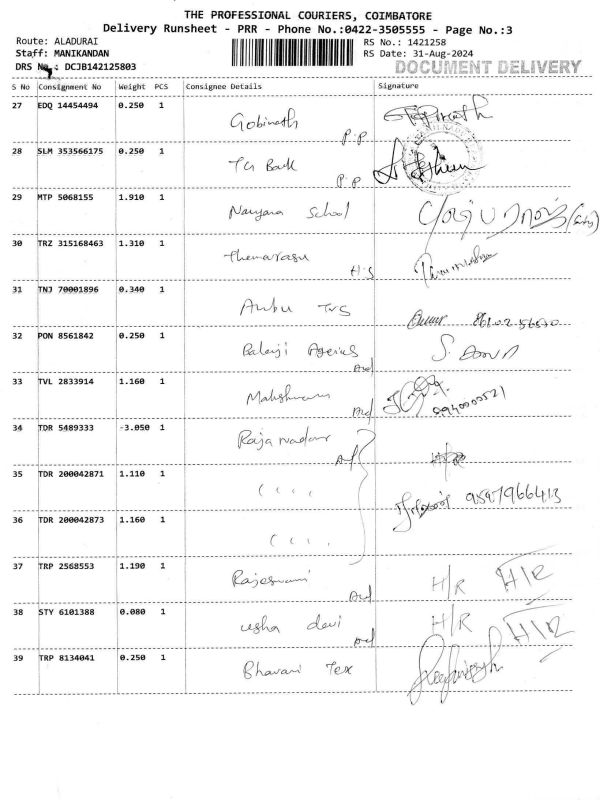 THE PROFESSIONAL COURIERS, COIMBATORE
Delivery Runsheet - PRR - Phone No.:0422-3505555 - Page No.:3
Route: ALADURAI RS No.: 1421258
Staff: MANIKANDAN RS Date: 31-Aug-2024
DRS No.: DCJB142125803 DOCUMENT DELIVERY
S No Consignment No Weight PCS Consignee Details Signature
27 EDQ 14454494 0.250 1
Gobinath
P.P
28 SLM 353566175 0.250 1
P.P
29 MTP 5068155 1.910 1
School
30 TRZ 315168463 1.310 1
Thenarasu
H.S
31 TNJ 70001896 0.340 1
Anbu TVS
32 PON 8561842 0.250 1
Balaji Agencies
33 TVL 2833914 1.160 1
5940000521
34 TDR 5489333 -3.050 1
Raja nadar
35 TDR 200042871 1.110 1
9597966413
36 TDR 200042873 1.160 1
37 TRP 2568553 1.190 1
Rajeswari H/R H/R
38 STY 6101388 0.080 1
usha devi H/R H/R
39 TRP 8134041 0.250 1
Bhavani Tex